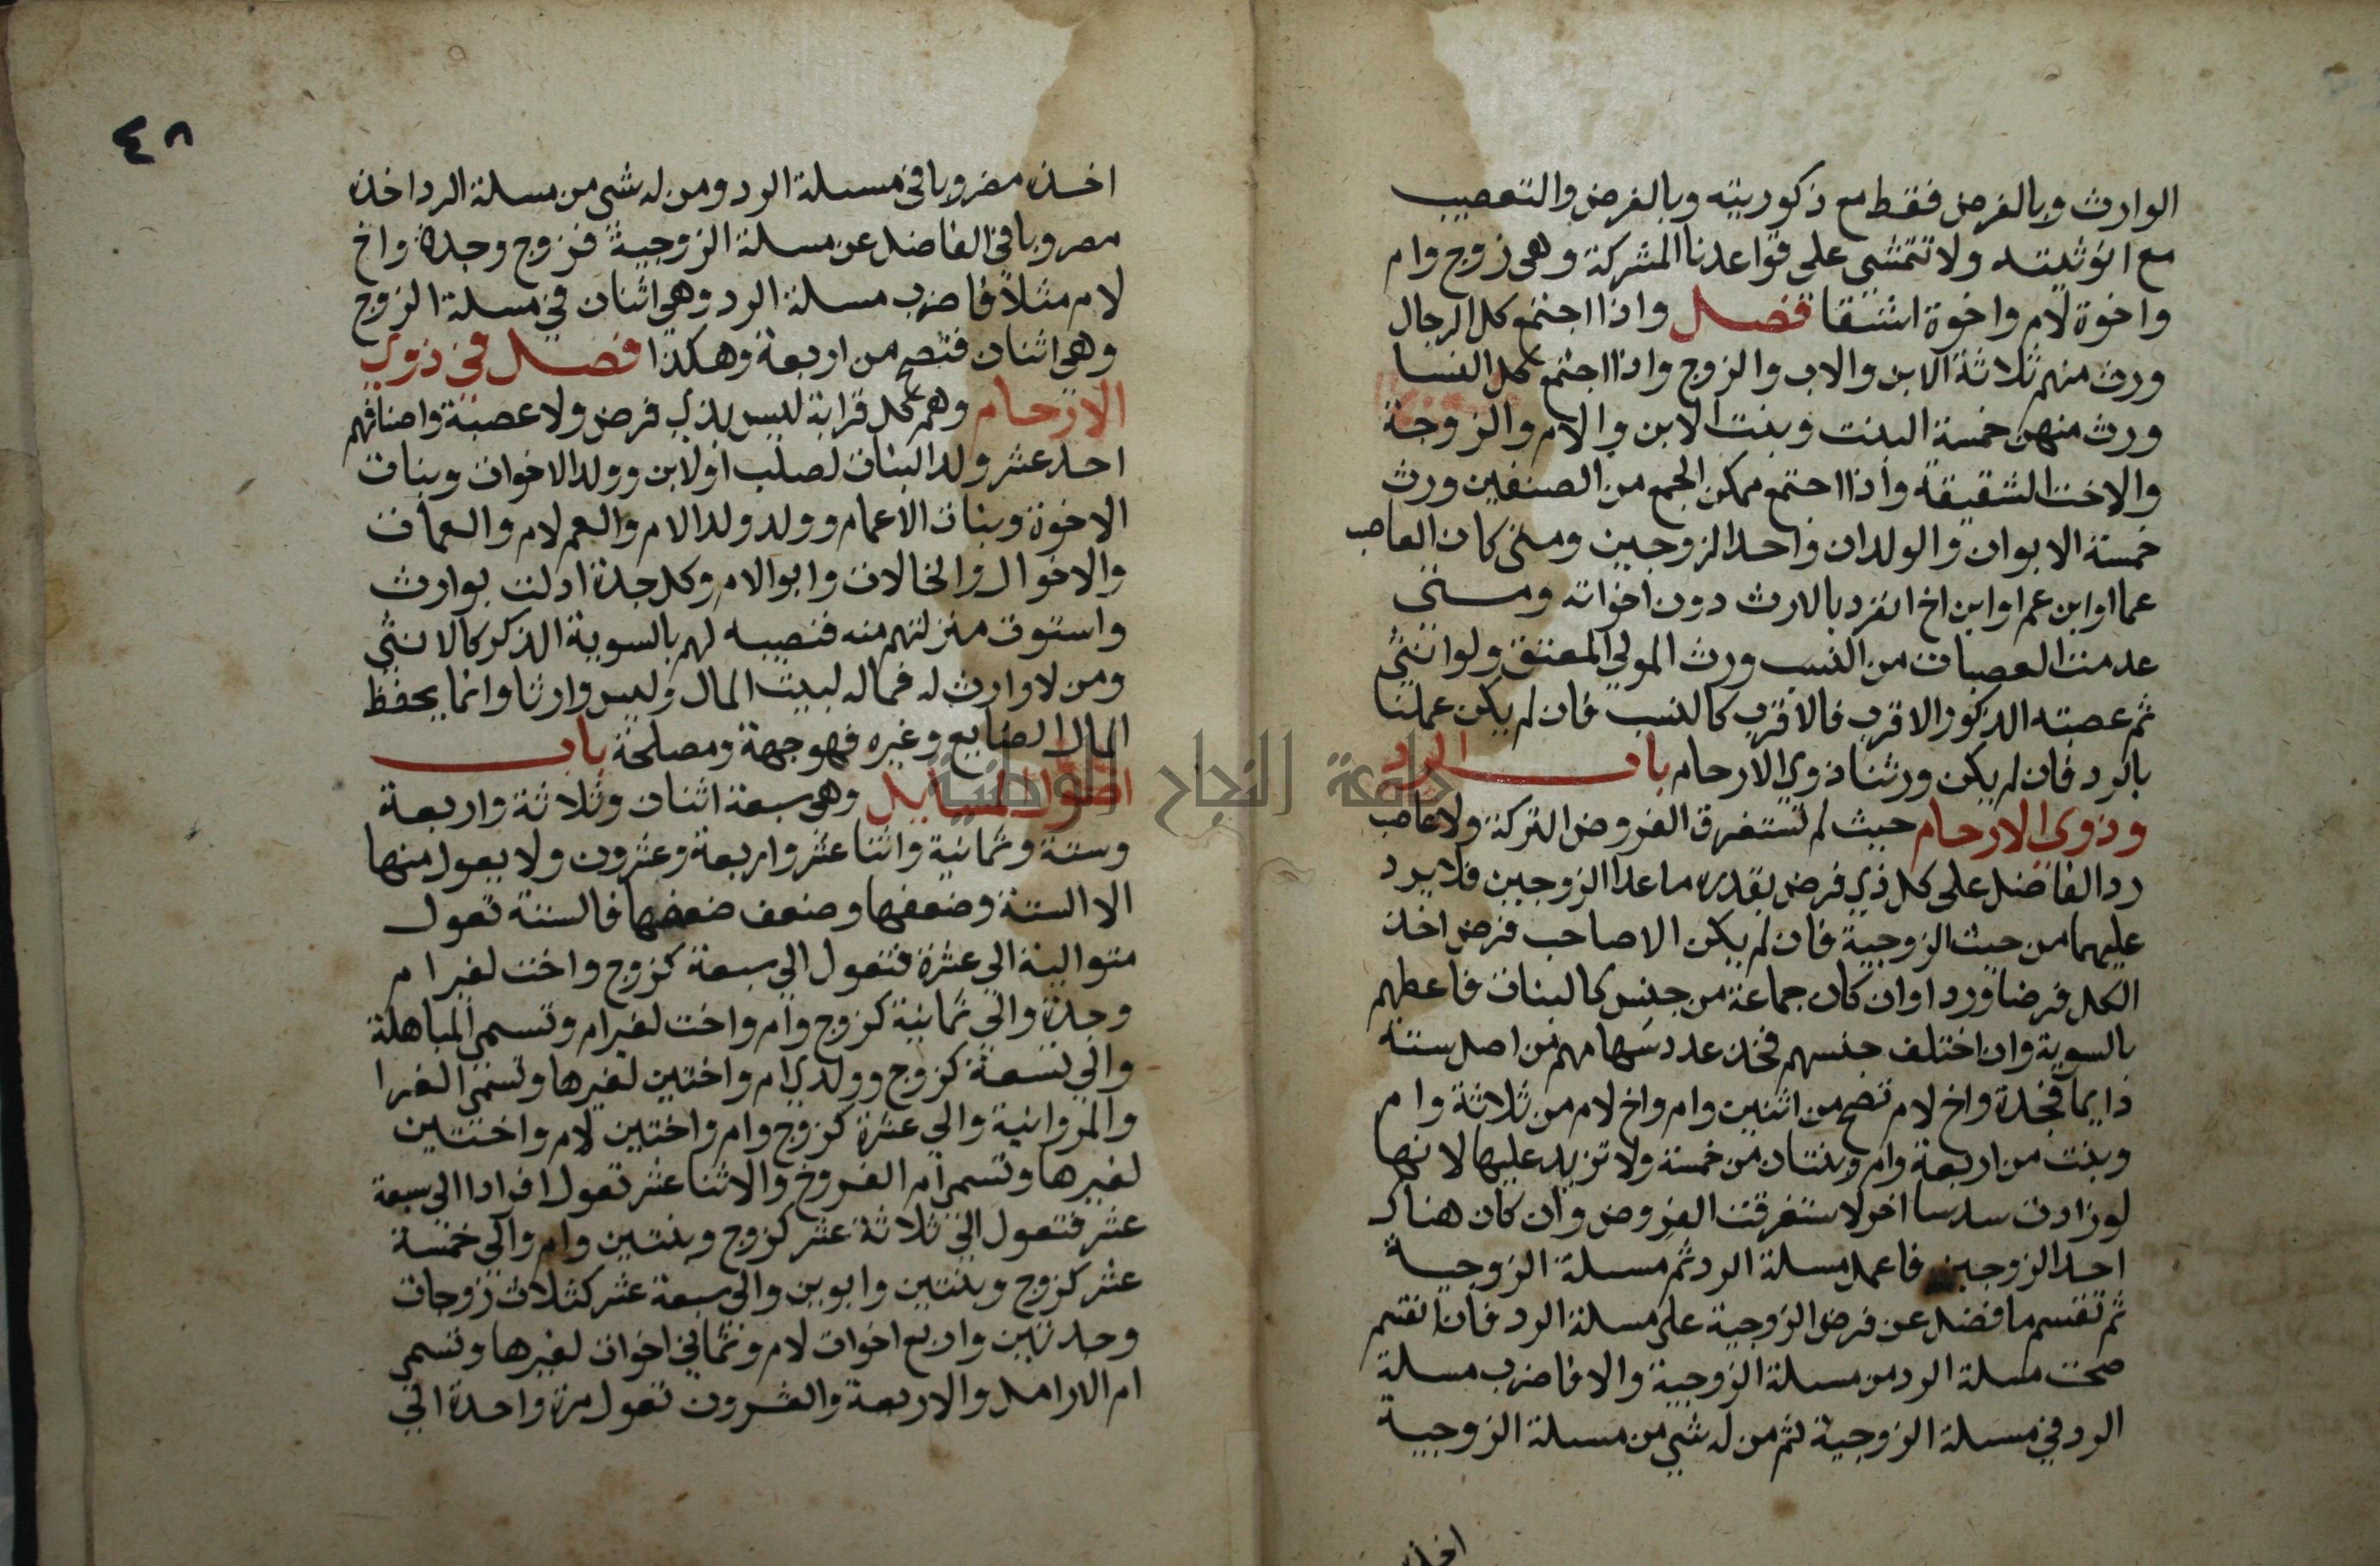 الوارث وبالفرض فقط مع ذكوريته وبالفرض والتعصيب
مع انوثيته ولا تتمشى على قواعدنا المشركة وهي زوج وام
واخوة لام واخوة اشقا فصل واذا اجتمع كل الرجال
ورث منهم ثلاثة الابن والاب والزوج واذا اجتمع كل النسا
ورث منهن خمسة البنت وبنت الابن والام والزوجة
والاخت الشقيقة واذا اجتمع ممكن الجمع من الصنفين ورث
خمسة الابوان والولدان واحد الزوجين ومتى كان العاصب
عما او ابن عم او ابن اخ انفرد بالارث دون اخواته ومتى
عدمت العصبات من النسب ورث المولى المعتق ولو انثى
ثم عصبته الذكور الاقرب فالاقرب كالنسب فان لم يكن عملنا
بالرد فان لم يكن ورثنا ذوي الارحام باب الرد
وذوي الارحام حيث لم تستغرق الفروض التركة ولا عاصب
رد الفاضل على كل ذي فرض بقدره ما عدا الزوجين فلا يرد
عليهما من حيث الزوجية فان لم يكن الا صاحب فرض اخذ
الكل فرضا وردا وان كان جماعة من جنس كالبنات فاعطهم
بالسوية وان اختلف جنسهم فخذ عدد سهامهم من اصل ستة
دايما فجدة واخ لام تصح من اثنين وام واخ لام من ثلاثة وام
وبنت من اربعة وام وبنتان من خمسة ولا تزيد عليها لانها
لو زادت سدسا اخر لاستغرقت الفروض وان كان هناك
احد الزوجين فاعمل مسلة الرد ثم مسلة الزوجية
ثم تقسم ما فضل عن فرض الزوجية على مسلة الرد فان انقسم
صحت مسلة الرد من مسلة الزوجية والا فاضرب مسلة
الرد في مسلة الزوجية ثم من له شي من مسلة الزوجية
اخذه
٤٨
اخذه مضروبا في مسلة الرد ومن له شي من مسلة الرد اخذه
مضروبا في الفاضل عن مسلة الزوجية فزوج وجدة واخ
لام مثلا فاضرب مسلة الرد وهي اثنان في مسلة الزوج
وهي اثنان فتصح من اربعة وهكذا فصل في ذوي
الارحام وهم كل قرابة ليس بذي فرض ولا عصبة واصنافهم
احد عشر ولد البنات لصلب او لابن وولد الاخوات وبنات
الاخوة وبنات الاعمام وولد ولد الام والعم لام والعمات
والاخوال والخالات وابو الام وكل جدة ادلت بوارث
واستوت منزلتهم منه فنصيبه لهم بالسوية الذكر كالانثى
ومن لا وارث له فماله لبيت المال وليس وارثا وانما يحفظ
المال الضايع وغيره فهو جهة ومصلحة باب
اصول المسايل وهي سبعة اثنان وثلاثة واربعة
وستة وثمانية واثنا عشر واربعة وعشرون ولا يعول منها
الا الستة وضعفها وضعف ضعفها فالستة تعول
متوالية الى عشرة فتعول الى سبعة كزوج واخت لغير ام
وجدة والى ثمانية كزوج وام واخت لغير ام وتسمى المباهلة
والى تسعة كزوج وولدي ام واختين لغيرها وتسمى الغرا
والمروانية والى عشرة كزوج وام واختين لام واختين
لغيرها وتسمى ام الفروخ والاثنا عشر تعول افرادا الى سبعة
عشر فتعول الى ثلاثة عشر كزوج وبنتين وام والى خمسة
عشر كزوج وبنتين وابوين والى سبعة عشر كثلاث زوجات
وجدتين واربع اخوات لام وثماني اخوات لغيرها وتسمى
ام الارامل والاربعة والعشرون تعول مرة واحدة الى
جامعة النجاح الوطنية